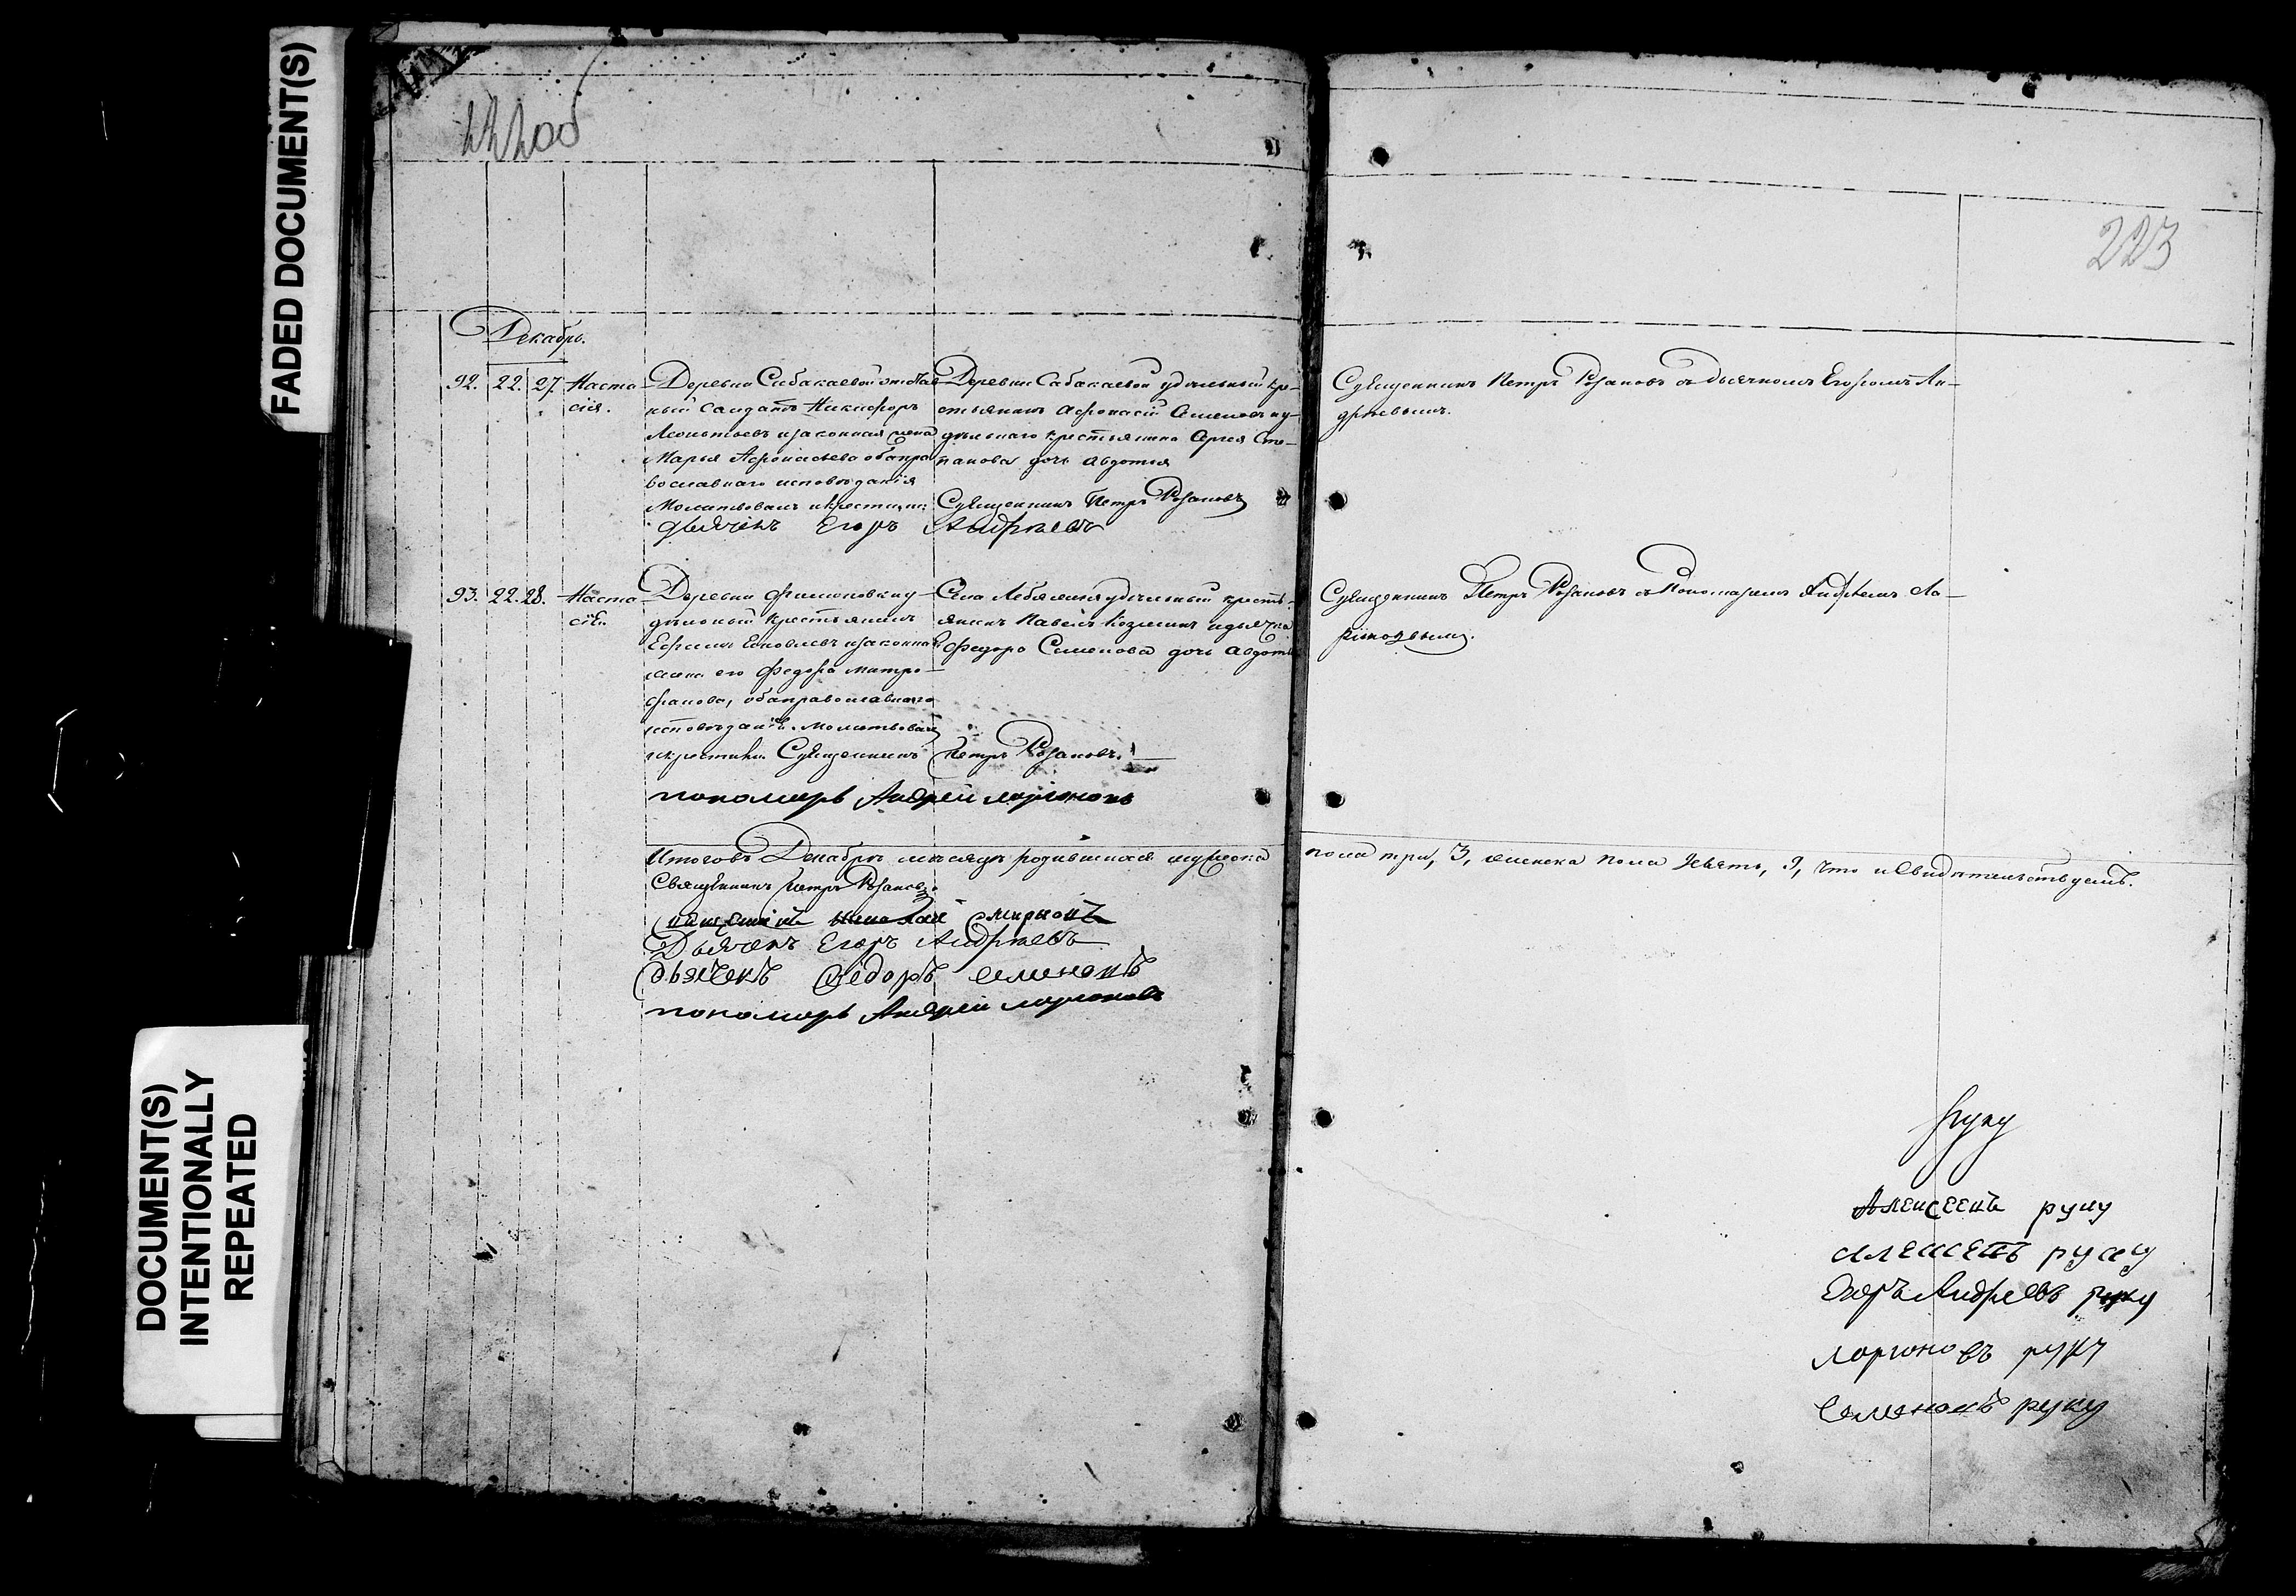 FADED DOCUMENT(S)
DOCUMENT(S)
INTENTIONALLY
REPEATED
222об
223
Декабрь.
92. 22. 27. Наста-
сія.
Деревни Сабакаевой
ный салдатъ Никифоръ
Леонтьевъ и законная жена
Марья Афонасьева оба пра
вославнаго исповѣданія
Молитвовалъ и крестилъ: Священникъ Петръ Розановъ
дьячекъ Егоръ Андрѣевъ
Деревни Сабакаевой удѣльный кре-
стьянинъ Афонасій Семеновъ и у-
дѣльнаго крестьянина Сте-
панова дочь Авдотья
Священникъ Петръ Розановъ съ дьячкомъ Егоромъ Ан-
дрѣевымъ.
93. 22. 28. Наста-
сія.
Деревни Филиповки у-
дѣльный крестьянинъ
Ефимъ Яковлевъ и законная
жена его Федора Митро-
фанова, оба православнаго
исповѣданія. Молитвовалъ
и крестилъ Священникъ Петръ Розановъ.
пономарь Андрей Ларіоновъ
Села Лебяжья удѣльный кресть-
янинъ Павелъ Козминъ и дьячка
Федора Семенова дочь Авдотья
Священникъ Петръ Розановъ съ Пономаремъ Андреемъ Ла-
ріоновымъ.
Итого въ Декабрѣ мѣсяцѣ родившихся мужеска пола три, 3, женска пола девять, 9, что и свидѣтельствуемъ.
Священникъ Петръ Розановъ
Николай Смирновъ
Дьячекъ Егоръ Андрѣевъ
дьячекъ Федоръ Семеновъ
пономарь Андрей Ларионовъ
руку
Алексеевъ руку
Алексеевъ руку
Егоръ Андреевъ руку
Ларионовъ руку
Семеновъ руку